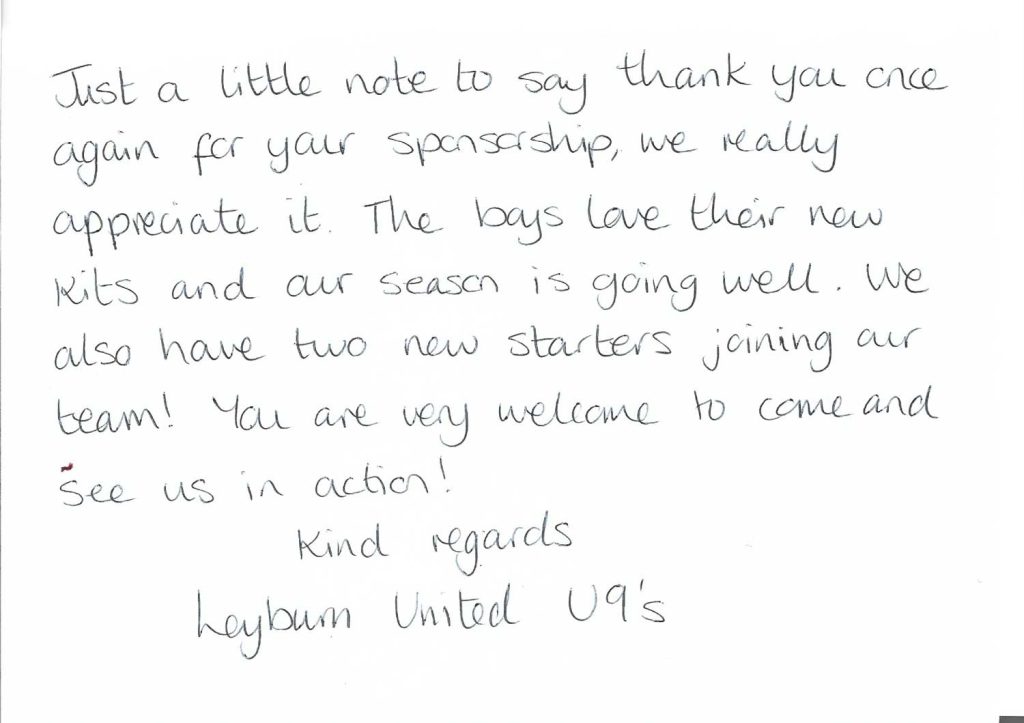 Just a little note to say thank you once
again for your sponsorship, we really
appreciate it. The boys love their new
kits and our season is going well. We
also have two new starters joining our
team! You are very welcome to come and
see us in action!
Kind regards
Leyburn United U9's